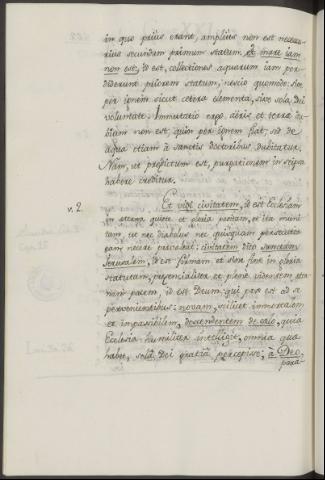 in quo prius erant, amplius non est necessa-
rius secundum primum statum, et mare iam
non est, id est, collectiones aquarum iam per-
diderunt priorem statum, nescio quomodo: sive
per ignem sicut cetera elementa, sive sola Dei
voluntate. Immutatio ergo aëris et terrae du-
bium non est, quin per ignem fiat; sed de
aqua etiam a sanctis doctoribus dubitatur.
Nam, ut praedictum est, purgationem in se ipsa
habere creditur.
v. 2. Et vidi civitatem, id est Ecclesiam
in aeterna quiete et gloria positam, et ita muni-
tam, ut nec diabolus nec quisquam persecutio-
nem inferre praevaleat: civitatem dico sanctam
Jerusalem, id est firmam et sine fine in gloria
staturam, praesentialiter et plene videntem aeter-
nam pacem, id est Deum, qui pax est ad se
pervenientibus: novam, scilicet immortalem
et impassibilem, descendentem de caelo, quia
Ecclesia humiliter intelligit, omnia quae
habet, sola Dei gratia percepisse; a Deo,
para-